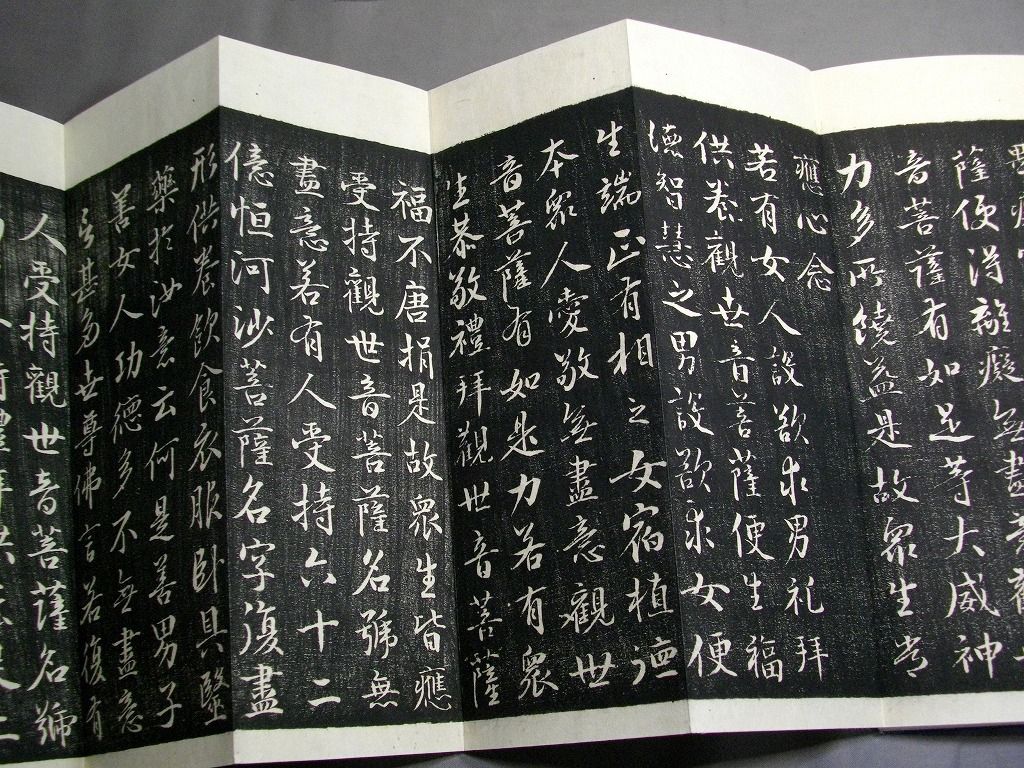 薩便得離癡無盡意觀
音菩薩有如是等大威神
力多所饒益是故眾生常
應心念
若有女人設欲求男礼拜
供養觀世音菩薩便生福
德智慧之男設欲求女便
生端正有相之女宿植德
本眾人愛敬無盡意觀世
音菩薩有如是力若有眾
生恭敬禮拜觀世音菩薩
福不唐捐是故眾生皆應
受持觀世音菩薩名號無
盡意若有人受持六十二
億恒河沙菩薩名字復盡
形供養飲食衣服臥具醫
藥於汝意云何是善男子
善女人功德多不無盡意
言甚多世尊佛言若復有
人受持觀世音菩薩名號
時禮拜供養是二